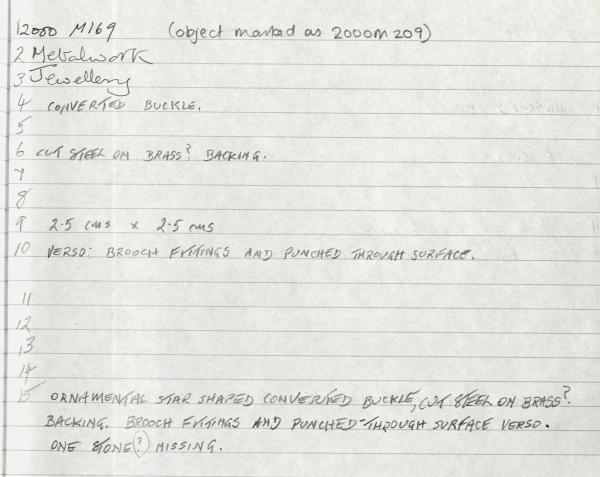 1 2000 M169 (object marked as 2000M209)
2 Metalwork
3 Jewellery
4 CONVERTED BUCKLE.
5
6 CUT STEEL ON BRASS? BACKING.
7
8
9 2.5 cms x 2.5 cms
10 VERSO: BROOCH FITTINGS AND PUNCHED THROUGH SURFACE.
11
12
13
14
15 ORNAMENTAL STAR SHAPED CONVERTED BUCKLE, CUT STEEL ON BRASS?
BACKING. BROOCH FITTINGS AND PUNCHED-THROUGH SURFACE VERSO.
ONE STONE(?) MISSING.